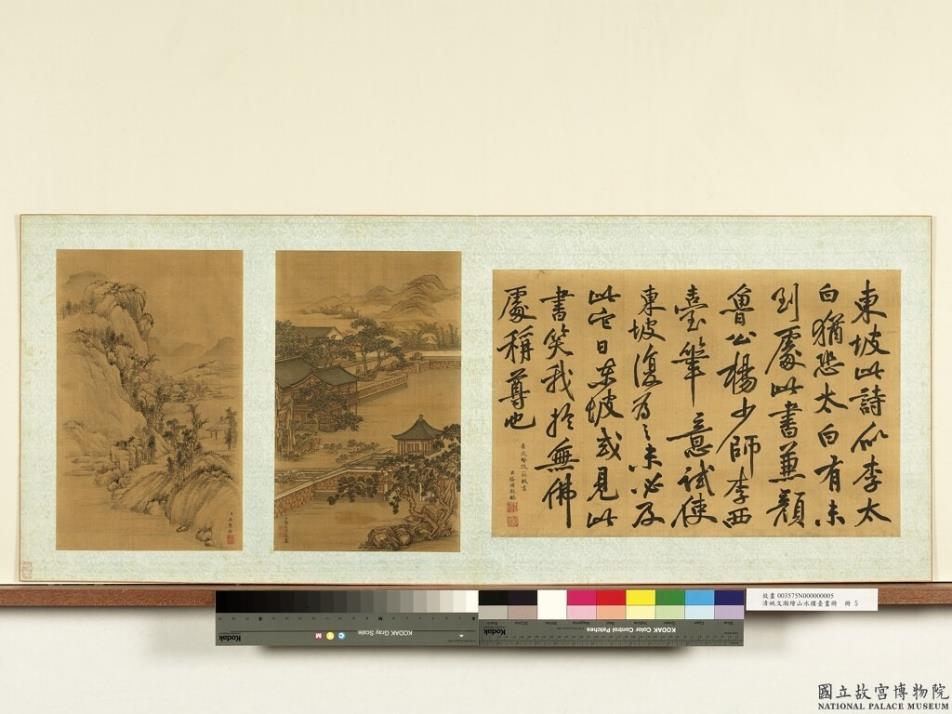 東坡此詩似李太
白猶恐太白有未
到處此書兼顏
魯公楊少師李西
臺筆意試使
東坡復為之未必及
此它日東坡或見此
書笑我於無佛
處稱尊也
故畫 003575N000000005
清姚文瀚繪山水樓臺畫冊 冊 5
Kodak
KODAK Gray Scale
C
Y
M
Kodak
KODAK Color Control Patches
國立故宮博物院
NATIONAL PALACE MUSEUM